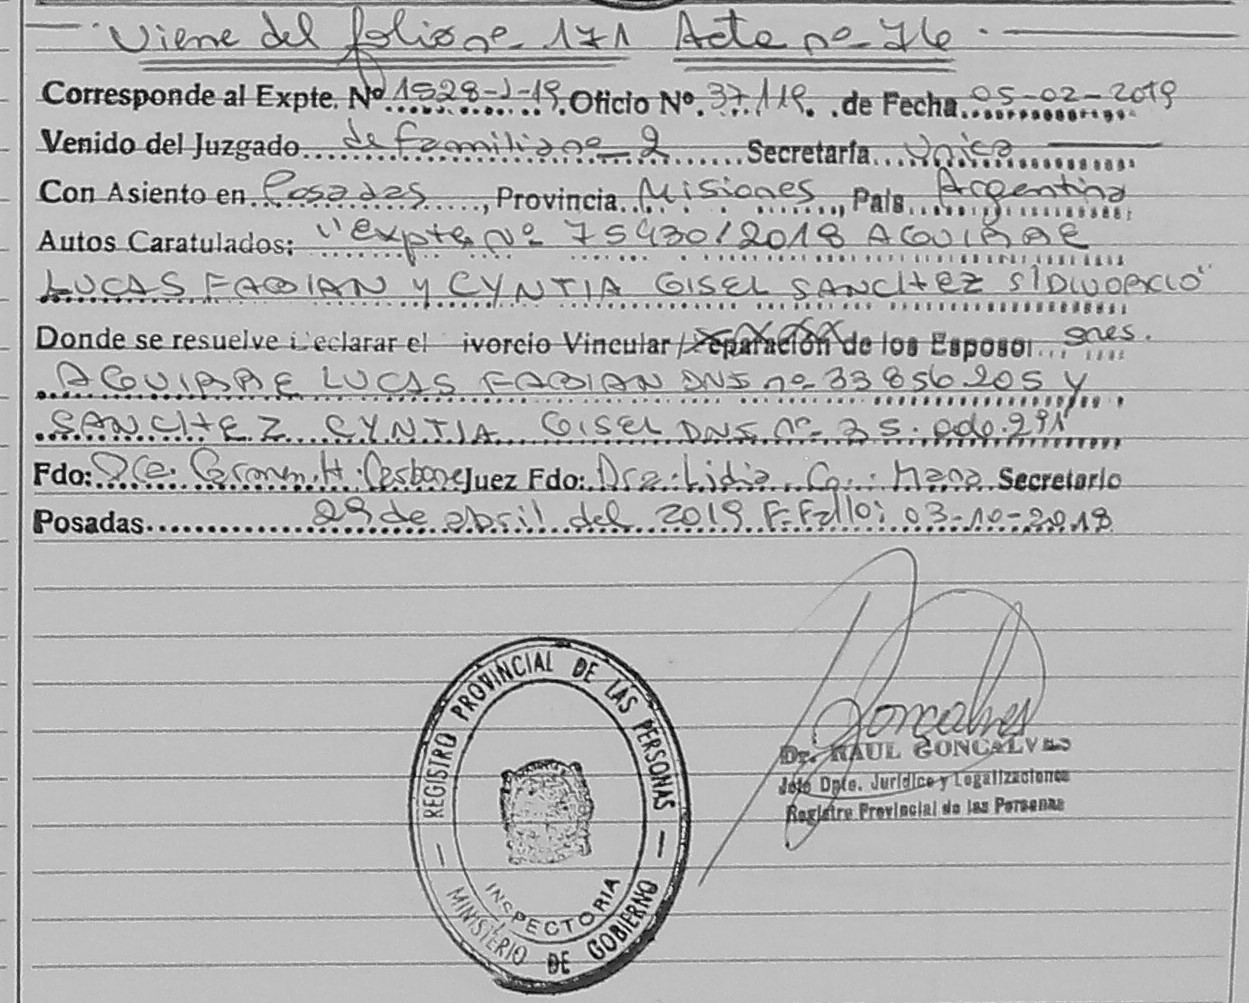 Viene del folio nº 171 Acta nº 76.
Corresponde al Expte. Nº 1528-J-19. Oficio Nº 37/19. de Fecha 05-02-2019
Venido del Juzgado de Familia nº 2 Secretaría Unica
Con Asiento en Posadas, Provincia Misiones, País Argentina
Autos Caratulados: "expte nº 75430/2018 AGUIRRE
LUCAS FABIAN Y CYNTIA GISEL SANCHEZ S/DIVORCIO"
Donde se resuelve Declarar el ivorcio Vincular / Separación de los Esposos
AGUIRRE LUCAS FABIAN DNI nº 33856205 Y
SANCHEZ CYNTIA GISEL DNI. nº 35. 291
Fdo: Dra. Carmen H. Carbone Juez Fdo: Dra. Lidia Secretario
Posadas 29 de abril del 2019 F. Fallo: 03-10-2018
Gonçalves
Dr. RAUL GONCALVES
Jefe Dpto. Jurídico y Legalizaciones
Registro Provincial de las Personas
REGISTRO PROVINCIAL DE LAS PERSONAS
INSPECTORIA
MINISTERIO DE GOBIERNO